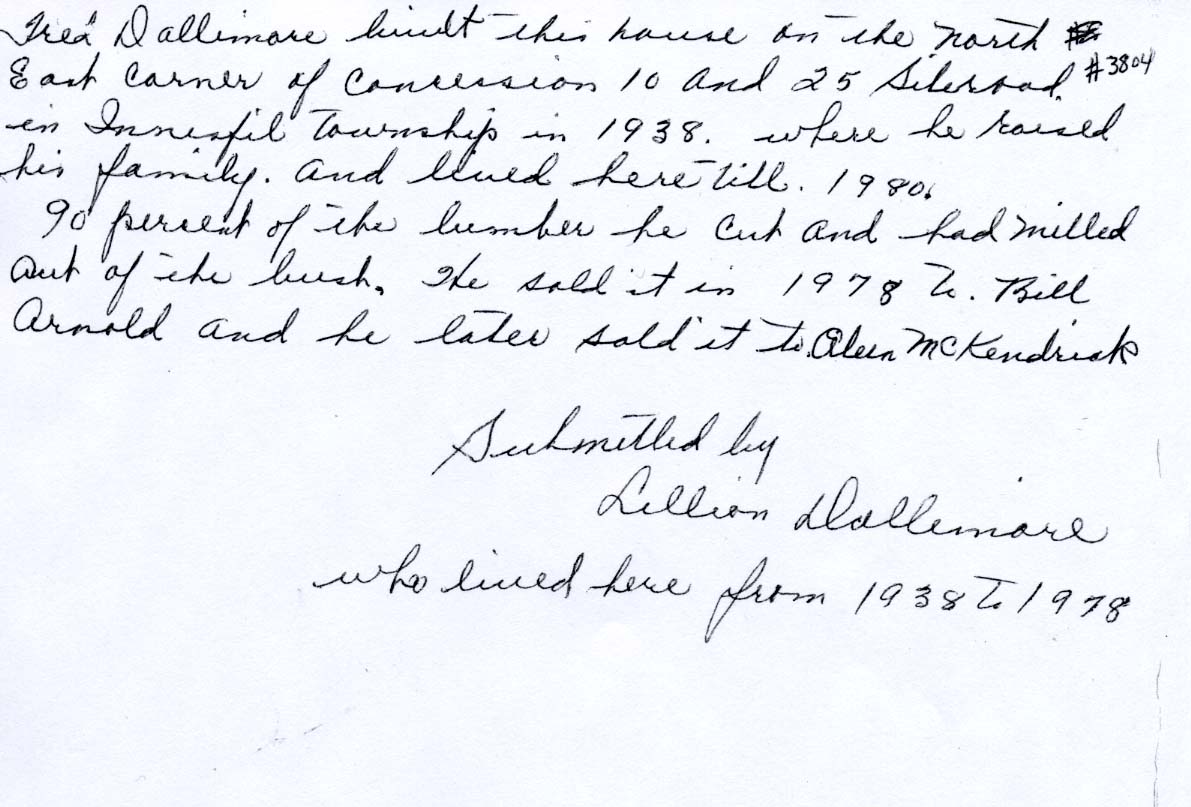 Fred Dallimore built this house on the North
East Corner of Concession 10 and 25 Sideroad. #3804
in Innisfil Township in 1938. where he raised
his family. and lived here till. 1980.
90 percent of the lumber he cut and had milled
out of the bush. He sold it in 1978 to. Bill
Arnold and he later sold it to. McKendrick
Submitted by
Lillian Dallimore
who lived here from 1938 to 1978